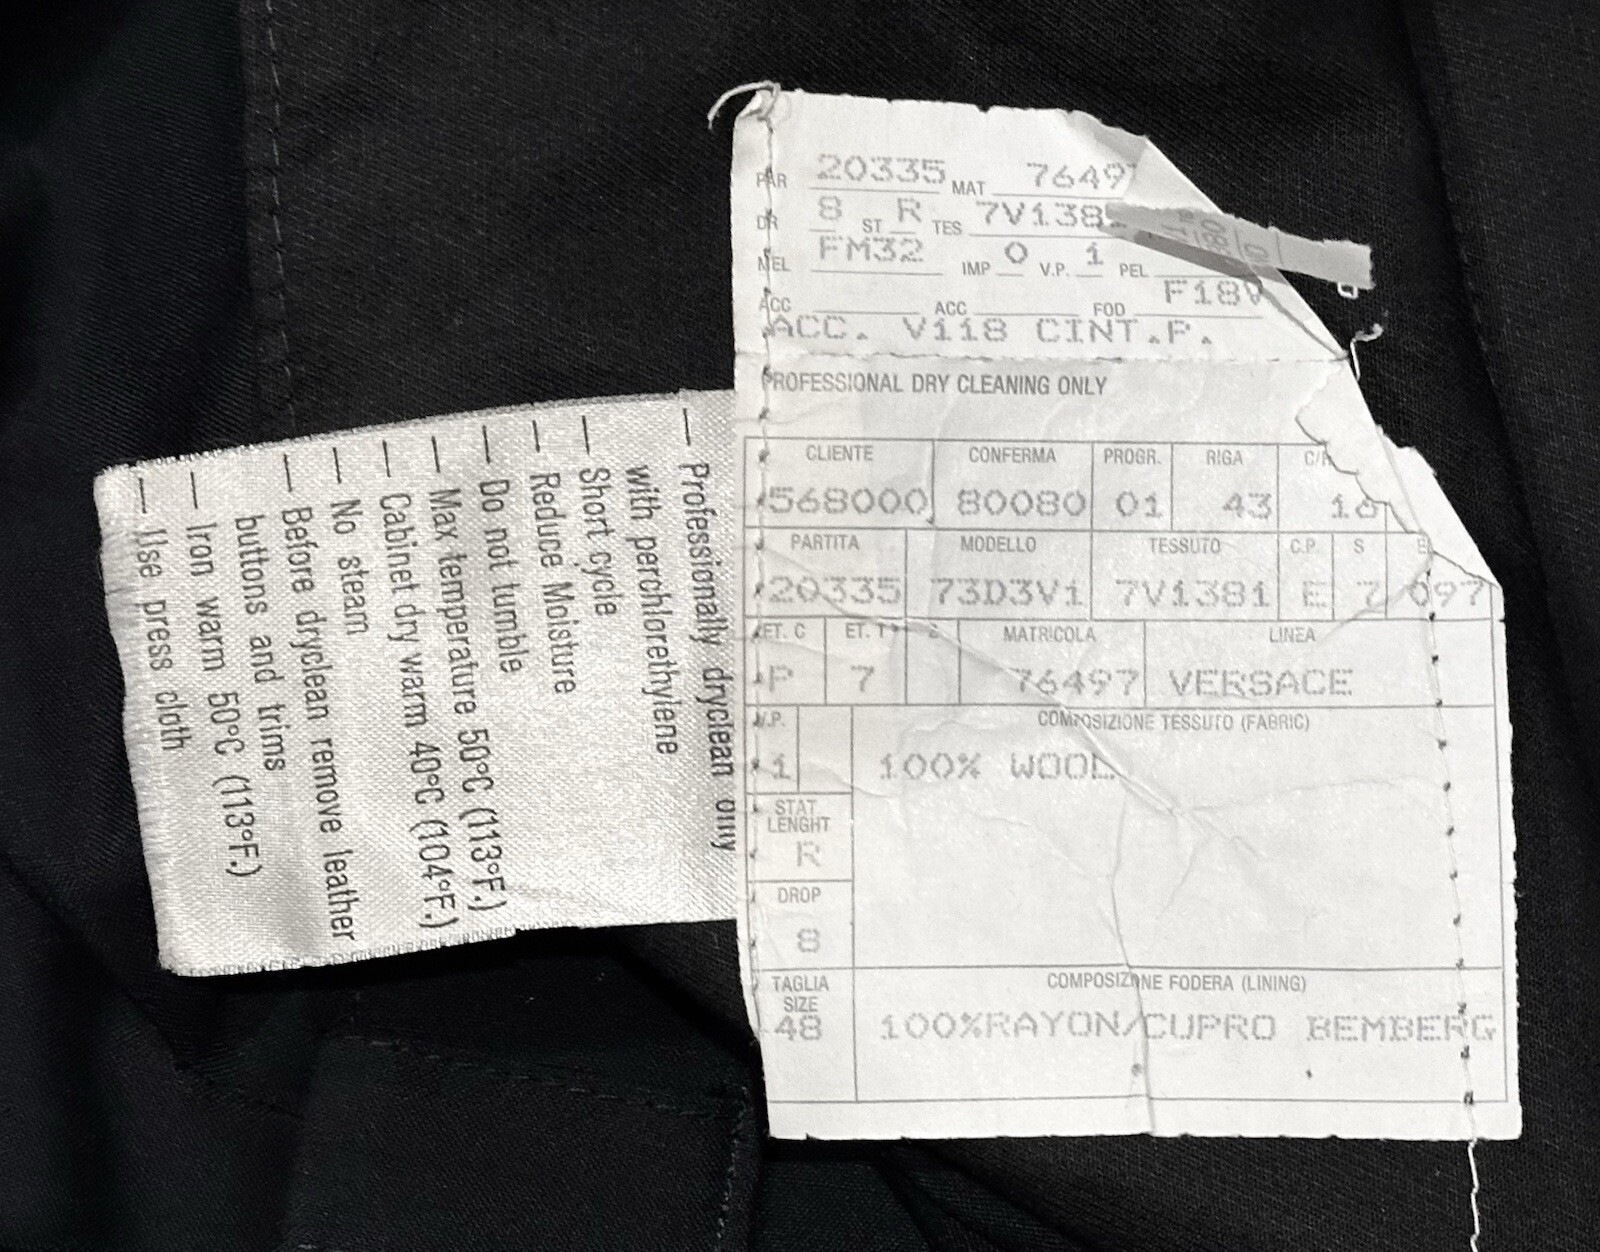 PAR 20335 MAT 76497
DR 8 ST R TES 7V1381
MEL FM32 IMP 0 V.P. 1 PEL
ACC ACC FOD F18V
ACC. V118 CINT.P.
PROFESSIONAL DRY CLEANING ONLY
CLIENTE CONFERMA PROGR. RIGA
568000 80080 01 43
PARTITA MODELLO TESSUTO C.P. S
20335 73D3V1 7V1381 E 7 097
ET. C ET. T MATRICOLA LINEA
P 7 76497 VERSACE
V.P. COMPOSIZIONE TESSUTO (FABRIC)
1 100% WOOL
STAT
LENGHT
R
DROP
8
TAGLIA COMPOSIZIONE FODERA (LINING)
SIZE
48 100%RAYON/CUPRO BEMBERG
— Professionally dryclean only
with perchlorethylene
— Short cycle
— Reduce Moisture
— Do not tumble
— Max temperature 50°C (113°F.)
— Cabinet dry warm 40°C (104°F.)
— No steam
— Before dryclean remove leather
buttons and trims
— Iron warm 50°C (113°F.)
— Use press cloth